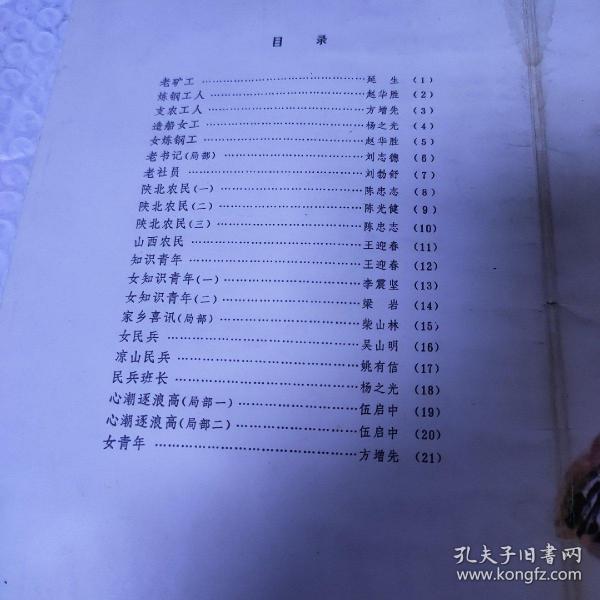 目 录
老矿工 …… 延 生 (1)
炼钢工人 …… 赵华胜 (2)
支农工人 …… 方增先 (3)
造船女工 …… 杨之光 (4)
女炼钢工 …… 赵华胜 (5)
老书记(局部) …… 刘志德 (6)
老社员 …… 刘勃舒 (7)
陕北农民(一) …… 陈忠志 (8)
陕北农民(二) …… 陈光健 (9)
陕北农民(三) …… 陈忠志 (10)
山西农民 …… 王迎春 (11)
知识青年 …… 王迎春 (12)
女知识青年(一) …… 李震坚 (13)
女知识青年(二) …… 梁 岩 (14)
家乡喜讯(局部) …… 柴山林 (15)
女民兵 …… 吴山明 (16)
凉山民兵 …… 姚有信 (17)
民兵班长 …… 杨之光 (18)
心潮逐浪高(局部一) …… 伍启中 (19)
心潮逐浪高(局部二) …… 伍启中 (20)
女青年 …… 方增先 (21)
孔夫子旧书网
www.kongfz.com